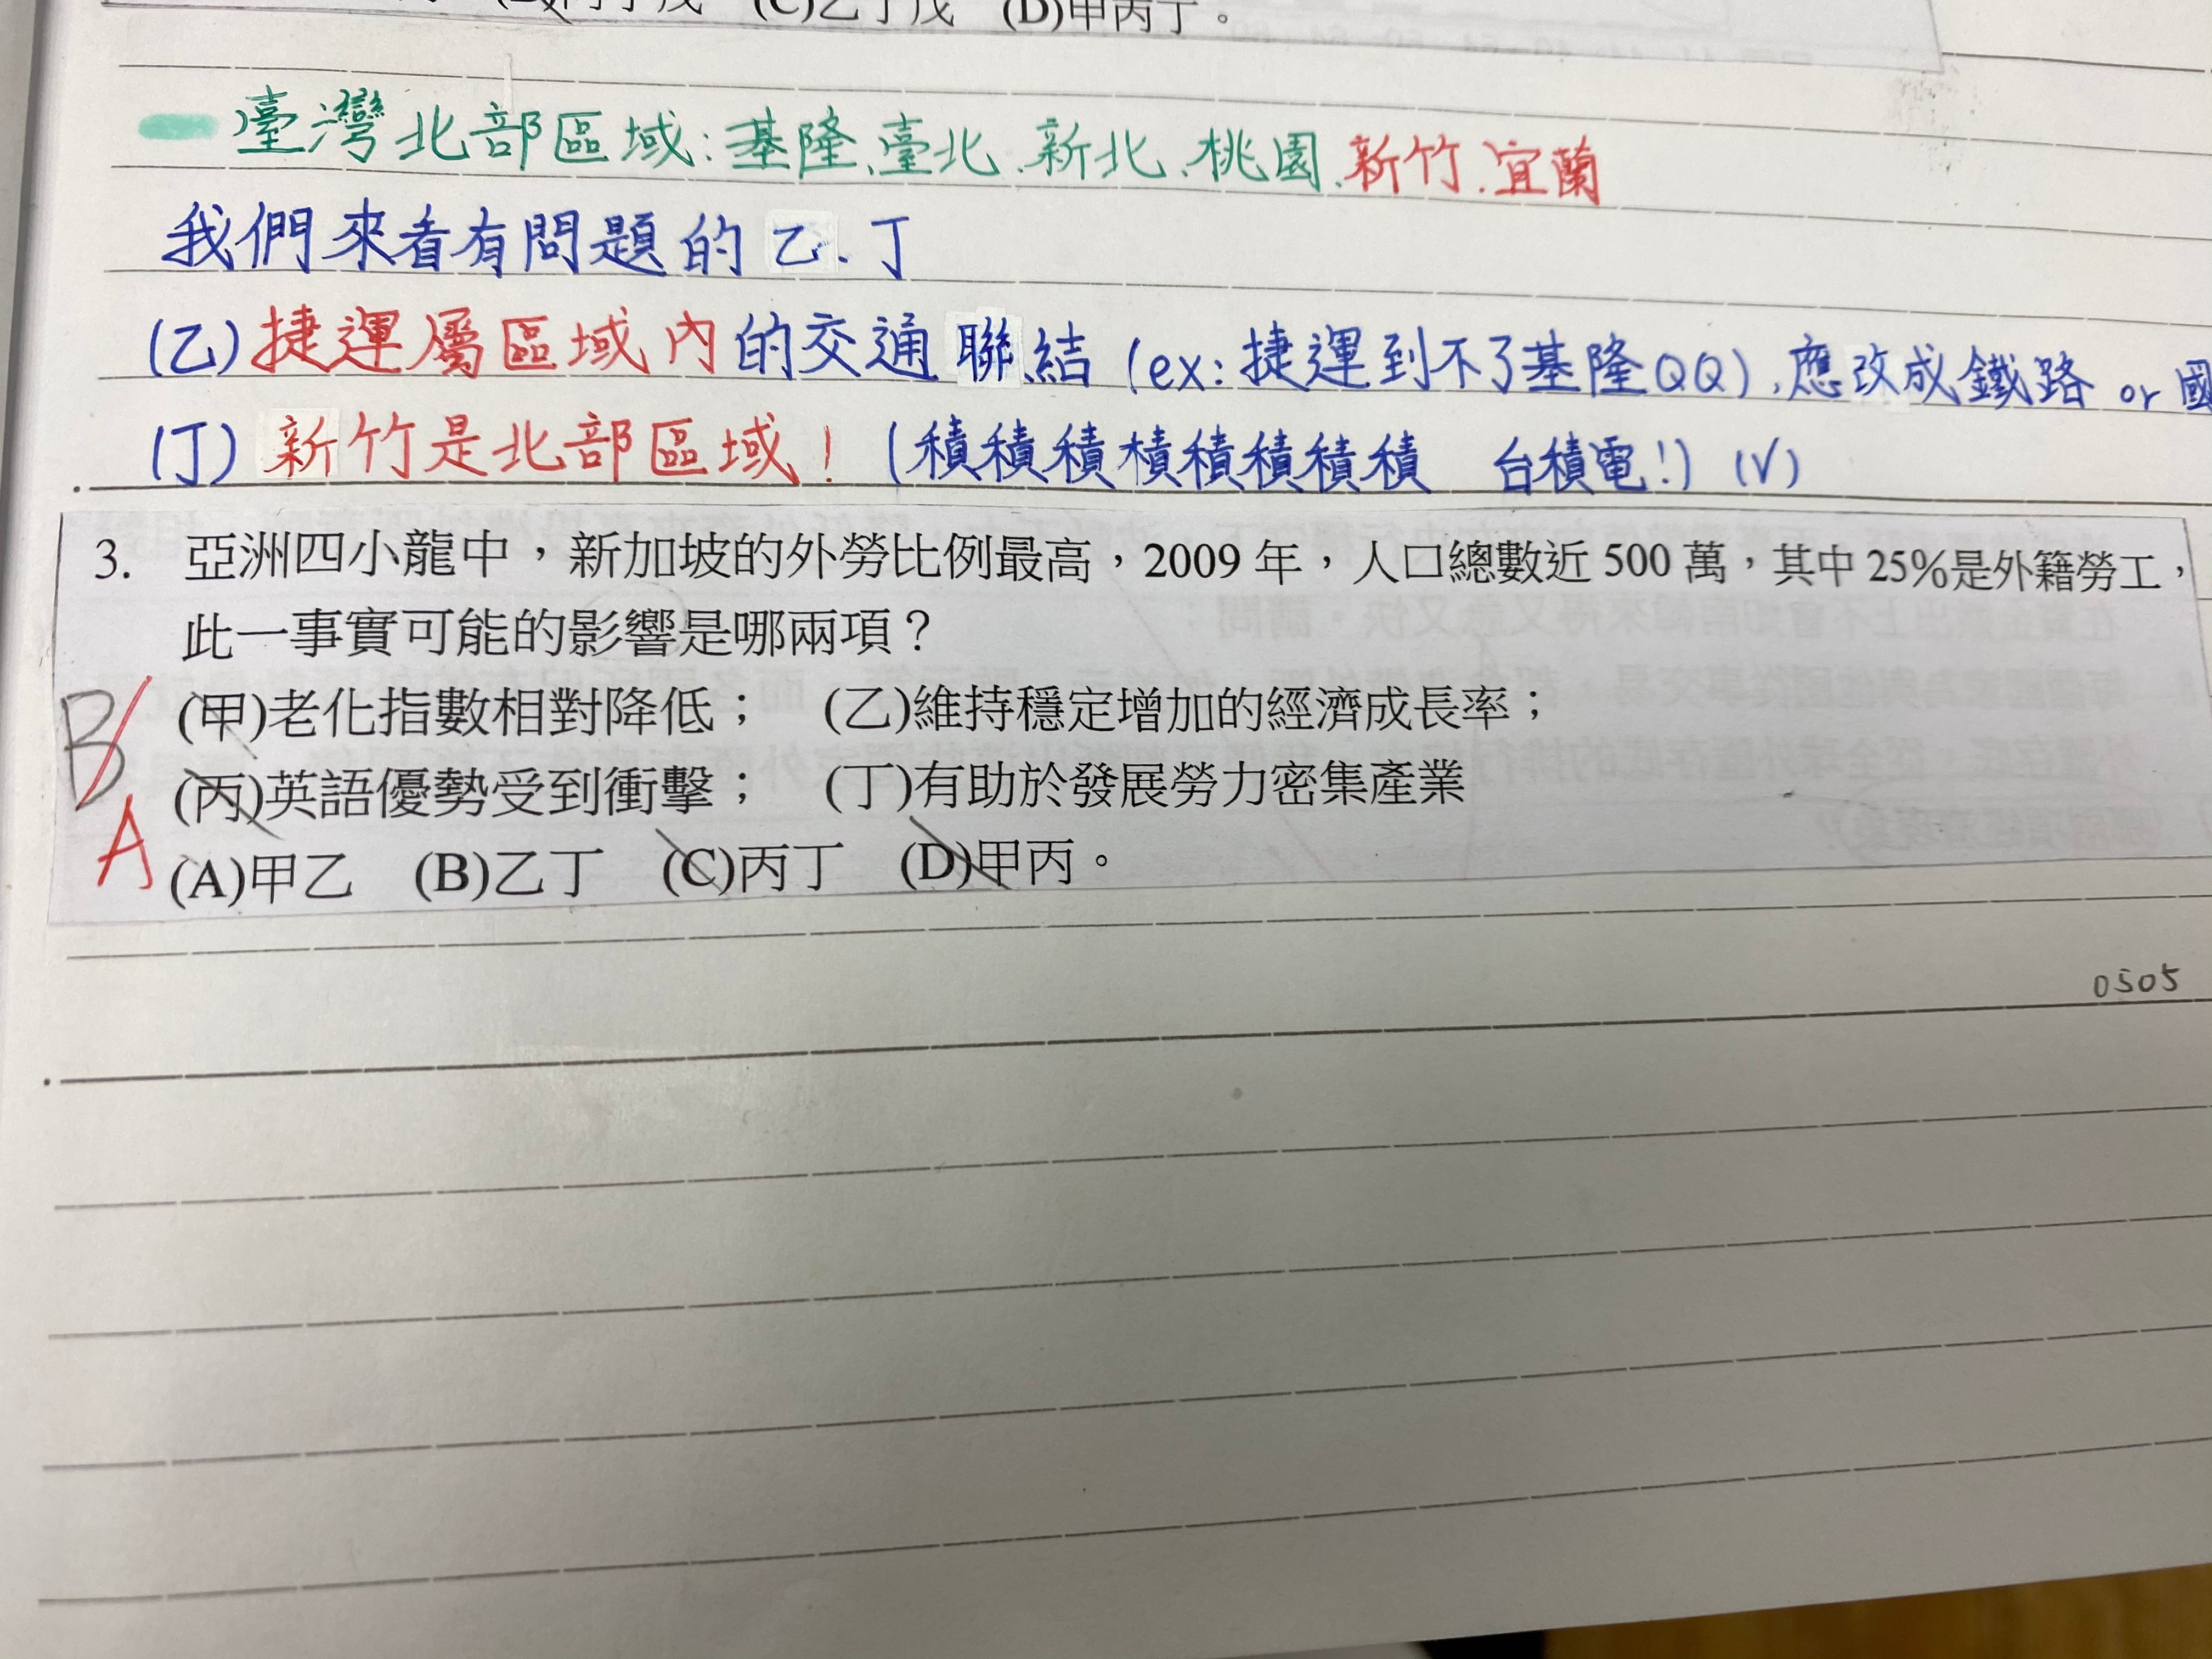 丙丁戊 (C)乙丁戊 (D)甲丙丁。
臺灣北部區域:基隆、臺北、新北、桃園、新竹、宜蘭
我們來看有問題的乙、丁
(乙)捷運屬區域內的交通聯結(ex:捷運到不了基隆QQ),應改成鐵路 or 國
(丁)新竹是北部區域!(積積積積積積積積 台積電!)(√)
3. 亞洲四小龍中,新加坡的外勞比例最高,2009 年,人口總數近 500 萬,其中 25%是外籍勞工,
此一事實可能的影響是哪兩項?
B (甲)老化指數相對降低; (乙)維持穩定增加的經濟成長率;
(丙)英語優勢受到衝擊; (丁)有助於發展勞力密集產業
A (A)甲乙 (B)乙丁 (C)丙丁 (D)甲丙。
0505